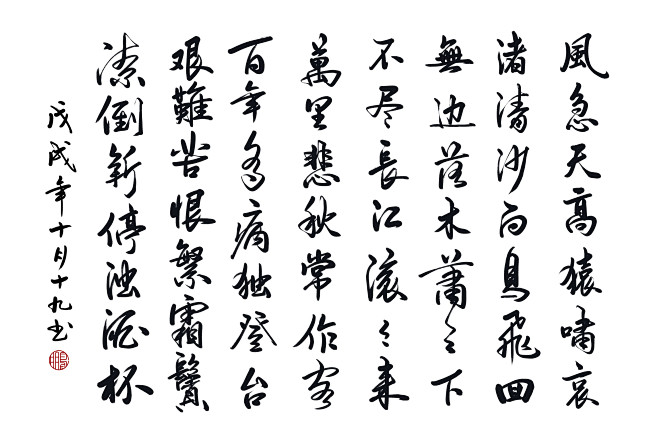 風急天高猿嘯哀
渚清沙白鳥飛回
無边落木蕭々下
不尽長江滚々来
萬里悲秋常作客
百年多病独登台
艰難苦恨繁霜鬢
潦倒新停浊酒杯
戊戌年十月十九书